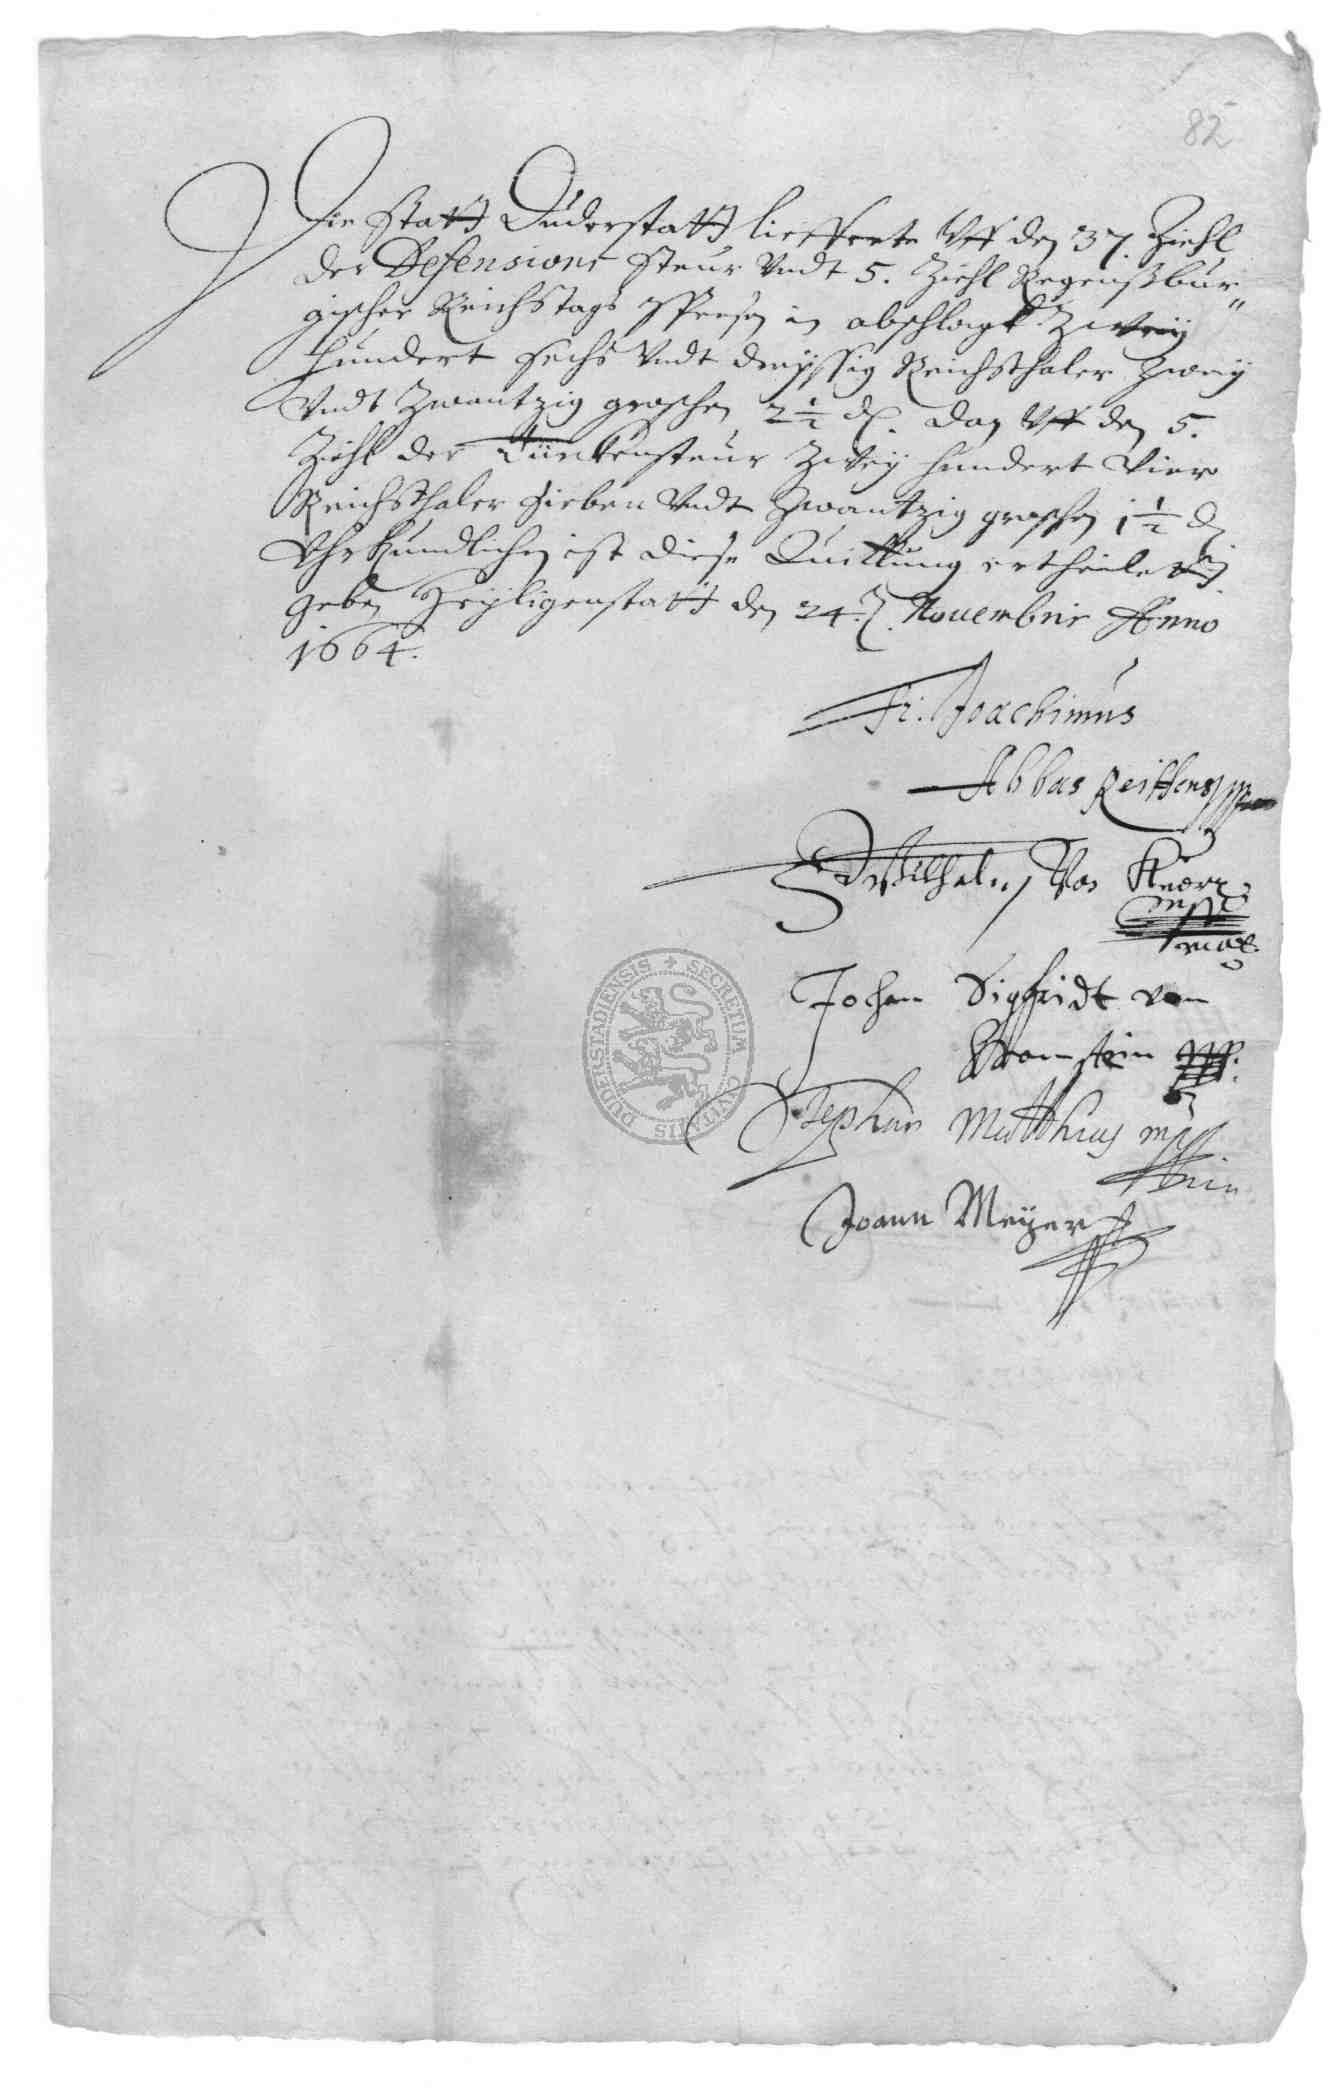 82
Die Statt Duderstatt liefferte Vff den 37. Ziehl
der Defensions Steur Vndt 5. Ziehl Regenßbur"
gischer Reichstags Spesen in abschlagk Zwey
hundert sechs Vndt dreyssig Reichsthaler Zwey
Vndt Zwantzig groschen 2 1/2 d. dan Vff den 5.
Ziehl der Türckensteur Zwey hundert Vier
Reichsthaler Sieben Vndt Zwantzig groschen 1 1/2 d
Vhrkundlichen ist diese Quittung ertheilet
geben Heyligenstatt den 24. Nouembris Anno
1664.
Fr. Joachimus
Abbas Reiffenst
Wilhelm Von Knorr
mpp
Johan Sigfridt von
mpp.
Stephan Matthias mpp
Joann Meyer
DUDERSTADIENSIS + SECRETUM CIVITATIS